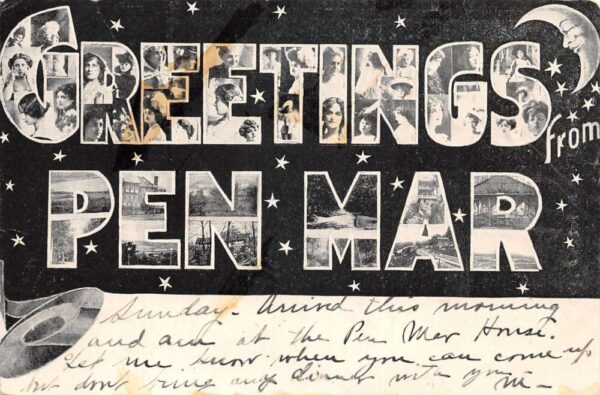 GREETINGS
from
PEN MAR
Sunday - Arrived this morning
and am at the Pen Mar House.
Let me know when you can come up
but dont bring any dinner with you
M-